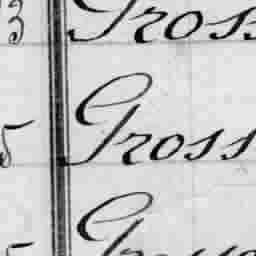 3 Gross
5 Gross